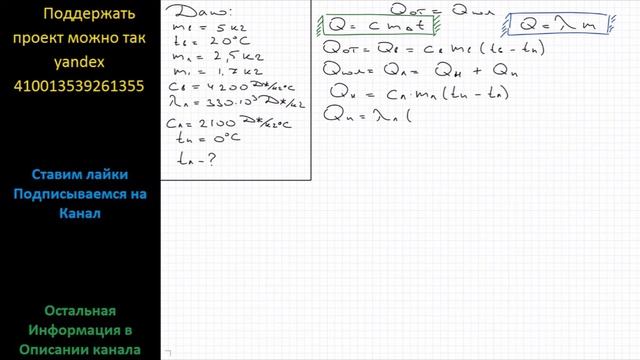 Поддержать
проект можно так
yandex
410013539261355
Ставим лайки
Подписываемся на
Канал
Остальная
Информация в
Описании канала
Дано:
mв = 5 кг
tв = 20°C
mл = 2,5 кг
m₁ = 1,7 кг
Cв = 4200 Дж/кг°C
λл = 330·10³ Дж/кг
Cл = 2100 Дж/кг°C
tк = 0°C
tл - ?
Qот = Qпол
Q = c m Δ t
Q = λ m
Qот = Qв = Cв mв (tв - tк)
Qпол = Qл = Qн + Qп
Qн = Cл · mл (tк - tл)
Qп = λл (